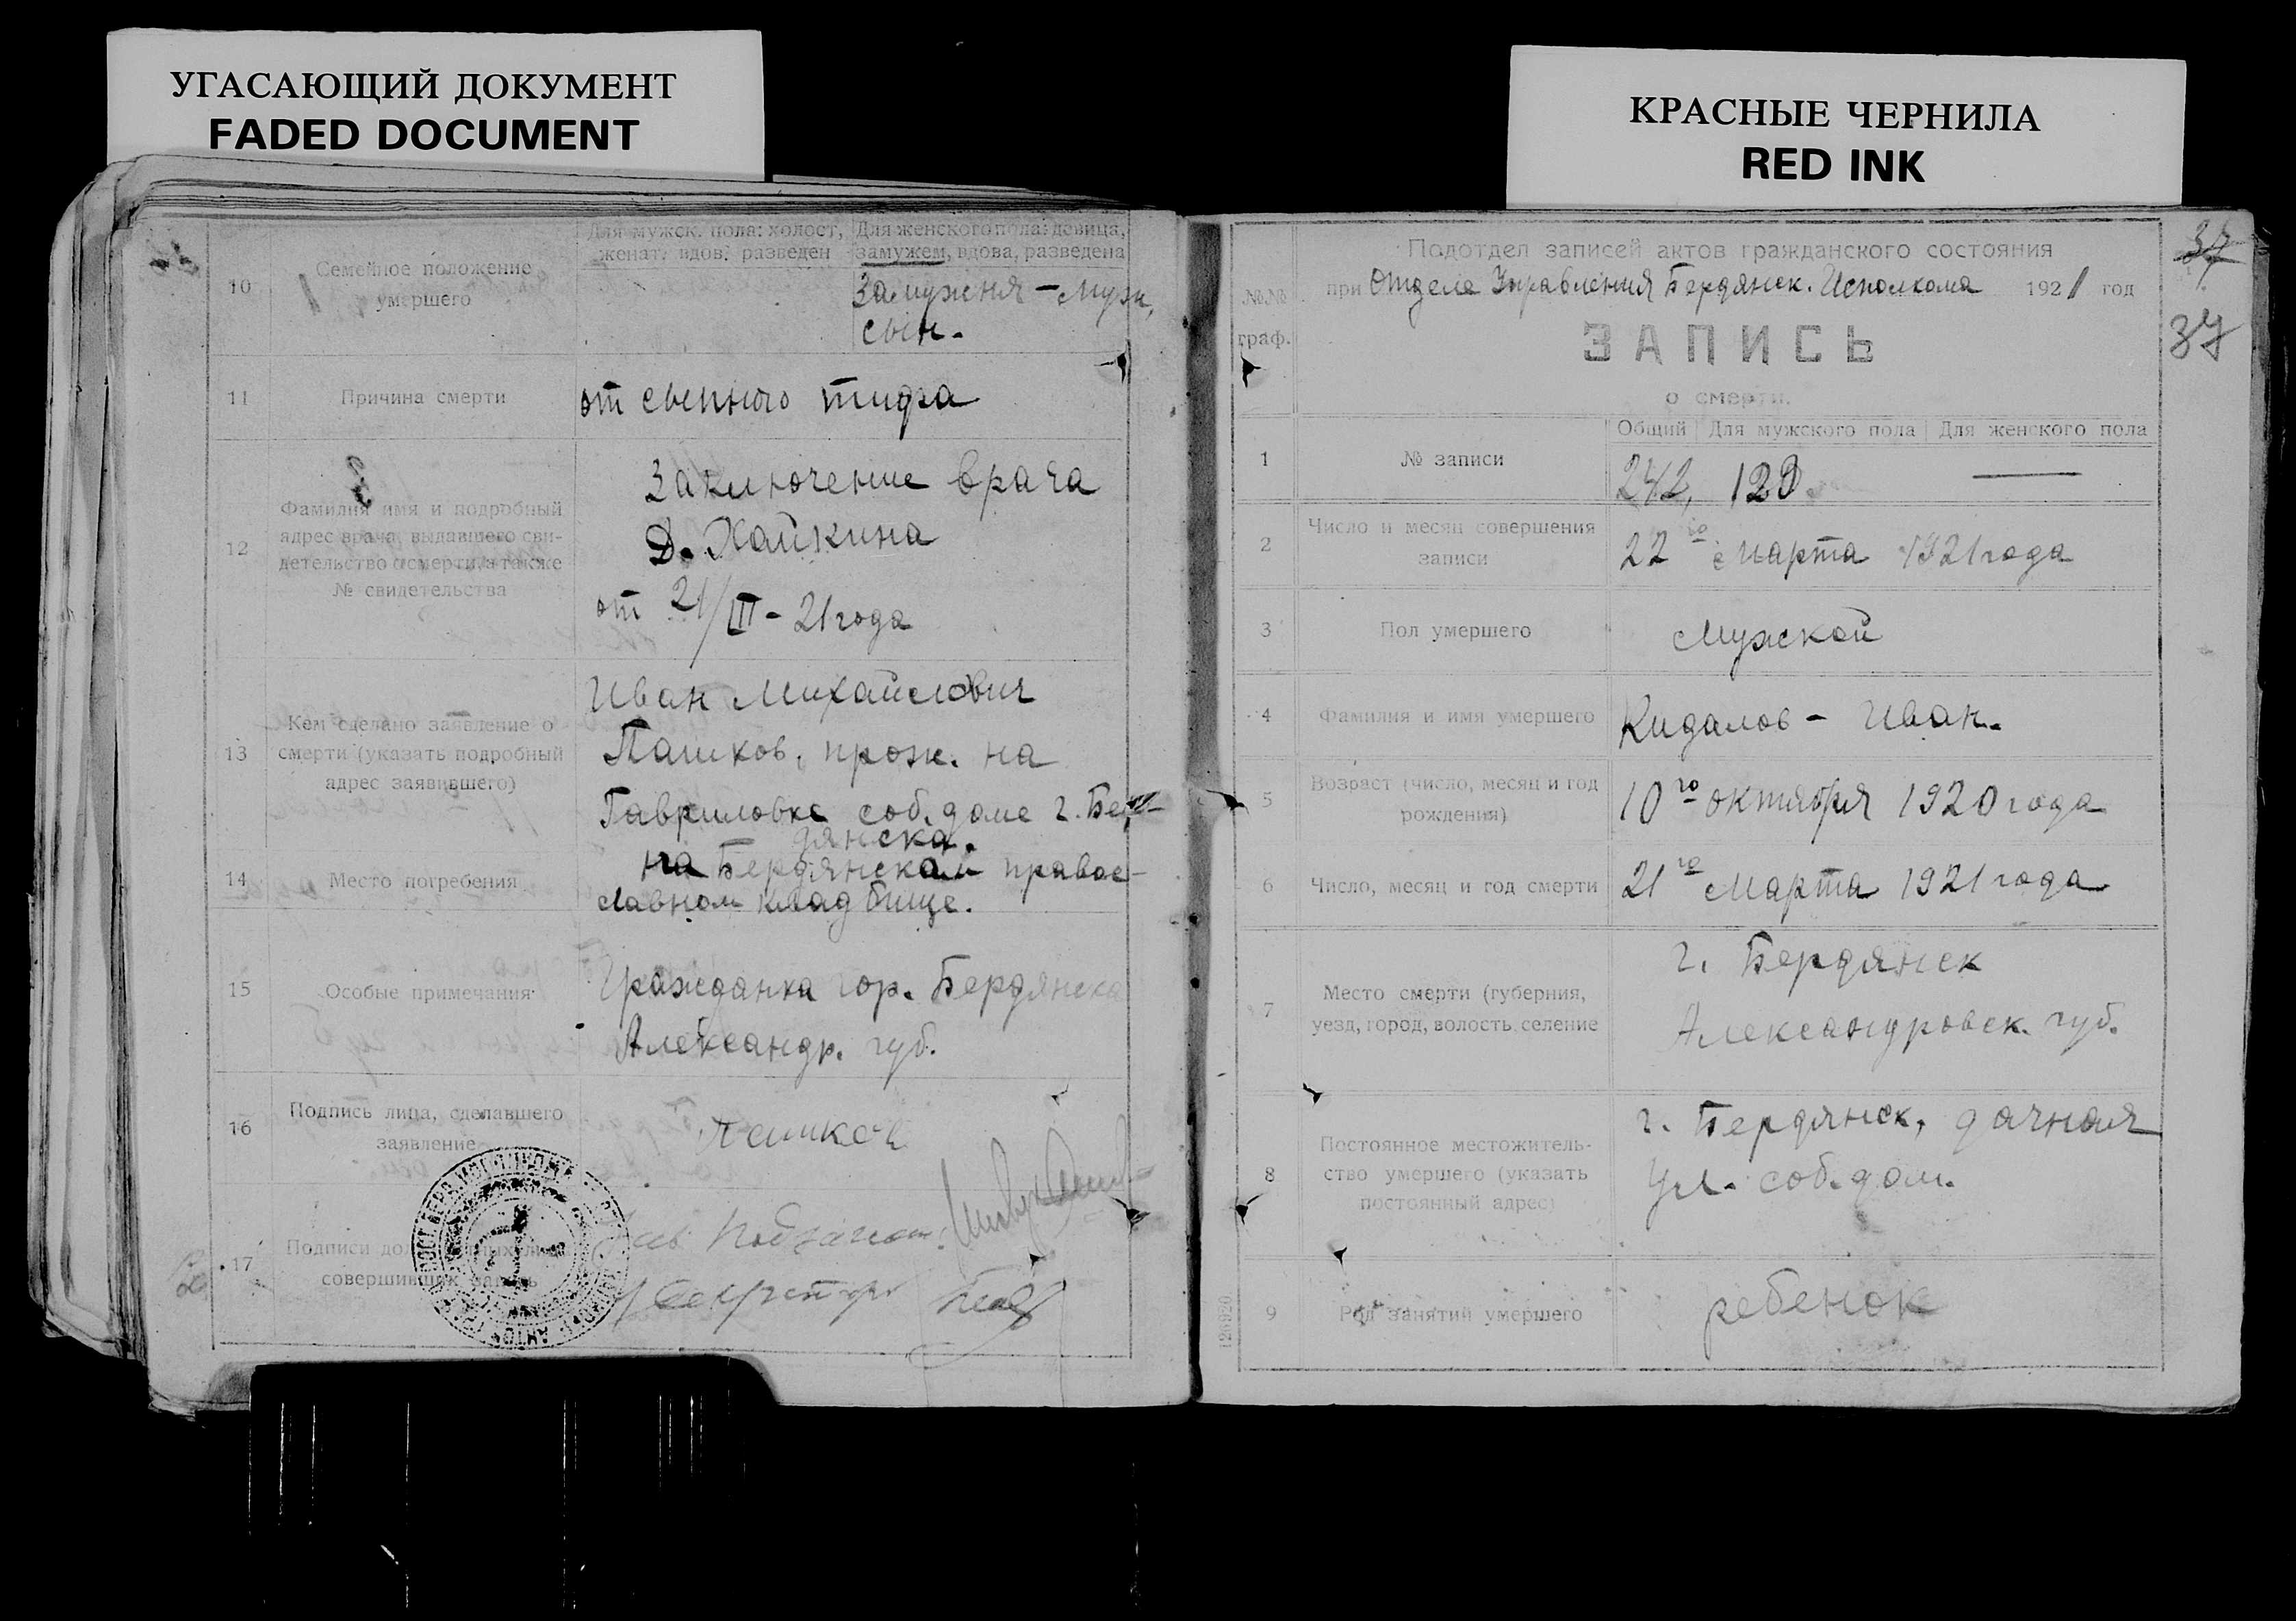 УГАСАЮЩИЙ ДОКУМЕНТ
FADED DOCUMENT
КРАСНЫЕ ЧЕРНИЛА
RED INK
10
Семейное положение
умершего
Для мужск. пола: холост,
женат, вдов, разведен
Для женского пола: девица,
замужем, вдова, разведена
Замужняя – муж,
сын.
11
Причина смерти
от сыпного тифа
12
Фамилия имя и подробный
адрес врача, выдавшего сви-
детельство о смерти, а также
№ свидетельства
Заключение врача
Д. Хайкина
от 21/III – 21 года
13
Кем сделано заявление о
смерти (указать подробный
адрес заявившего)
Иван Михайлович
Пашков, прож. на
Гавриловке соб. доме г. Бер-
дянска.
14
Место погребения
на Бердянском правос-
лавном кладбище.
15
Особые примечания
Гражданка гор. Бердянска
Александр. губ.
16
Подпись лица, сделавшего
заявление
Пашков
17
Подписи
совершивших запись
Секретарь
37
37
Подотдел записей актов гражданского состояния
при Отделе Управления Бердянск. Исполкома 1921 год
№№
граф.
ЗАПИСЬ
о смерти.
Общий Для мужского пола Для женского пола
1
№ записи
242, 129. —
2
Число и месяц совершения
записи
22го Марта 1921 года
3
Пол умершего
Мужской
4
Фамилия и имя умершего
Кидалов – Иван.
5
Возраст (число, месяц и год
рождения)
10го октября 1920 года
6
Число, месяц и год смерти
21го Марта 1921 года
7
Место смерти (губерния,
уезд, город, волость, селение
г. Бердянск
Александровск. губ.
8
Постоянное местожитель-
ство умершего (указать
постоянный адрес)
г. Бердянск, дачная
ул. соб. дом.
9
Род занятий умершего
ребенок
126920